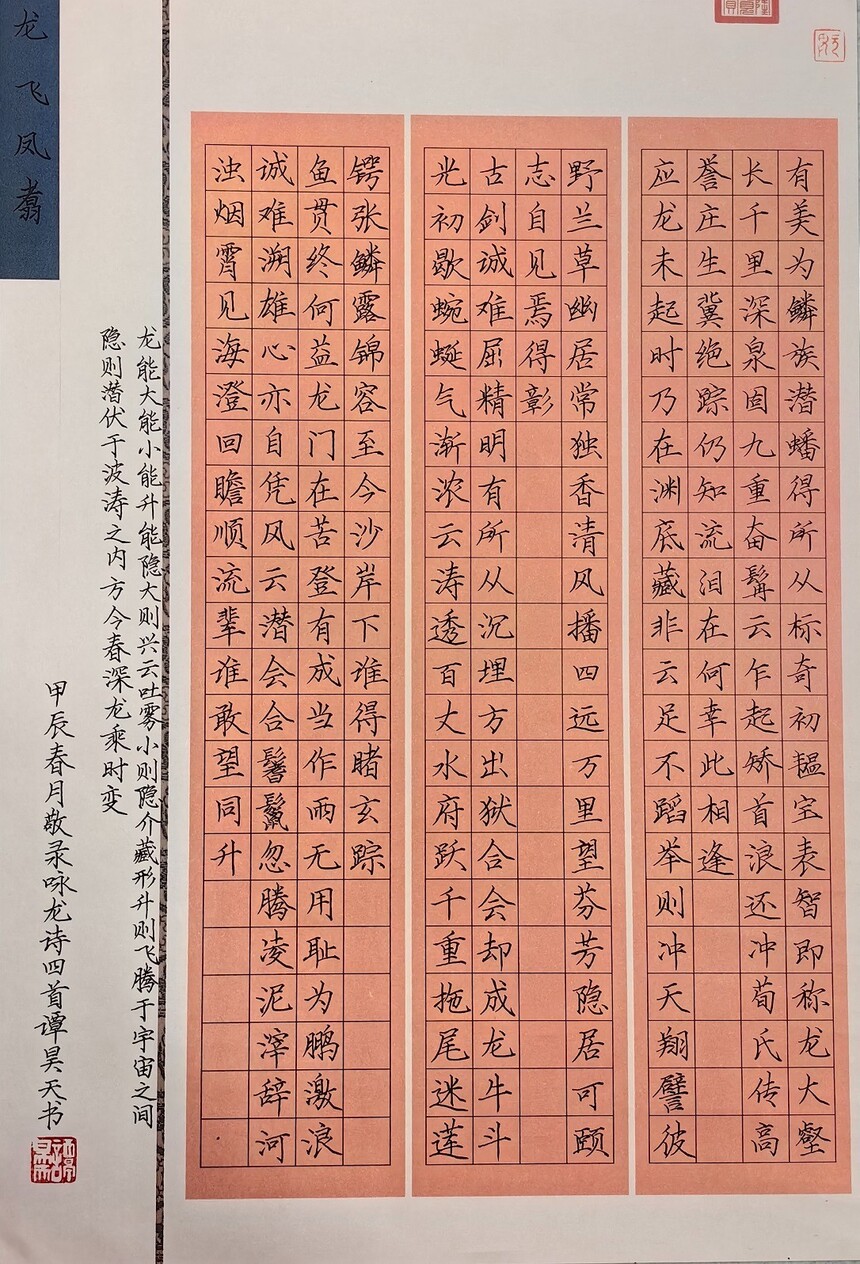 有美为鳞族潜蟠得所从标奇初韫宝表智即称龙大壑
长千里深泉固九重奋髯云乍起矫首浪还冲荀氏传高
誉庄生冀绝踪仍知流泪在何幸此相逢
应龙未起时乃在渊底藏非云足不蹈举则冲天翔譬彼
野兰草幽居常独香清风播四远万里望芬芳隐居可颐
志自见焉得彰
古剑诚难屈精明有所从沉埋方出狱合会却成龙牛斗
光初歇蜿蜒气渐浓云涛透百丈水府跃千重拖尾迷莲
锷张鳞露锦容至今沙岸下谁得睹玄踪
鱼贯终何益龙门在苦登有成当作雨无用耻为鹏激浪
诚难溯雄心亦自凭风云潜会合鬐鬣忽腾凌泥滓辞河
浊烟霄见海澄回瞻顺流辈谁敢望同升
龙能大能小能升能隐大则兴云吐雾小则隐介藏形升则飞腾于宇宙之间
隐则潜伏于波涛之内方今春深龙乘时变
甲辰春月敬录咏龙诗四首谭昊天书
龙飞凤翥